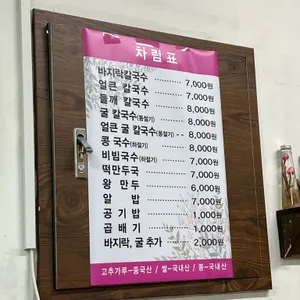 차림표
바지락칼국수 ········ 7,000원
얼큰 칼국수 ········ 7,000원
들깨 칼국수 ········ 8,000원
굴 칼국수(동절기) ········ 8,000원
얼큰 굴 칼국수(동절기) -- 8,000원
콩 국수(하절기) ········ 8,000원
비빔국수(하절기) ········ 7,000원
떡만두국 ········ 7,000원
왕 만두 ········ 6,000원
알 밥 ········ 7,000원
공기밥 ········ 1,000원
곱배기 ········ 1,000원
바지락, 굴 추가 ···· 2,000원
고추가루-중국산 / 쌀-국내산 / 콩-국내산